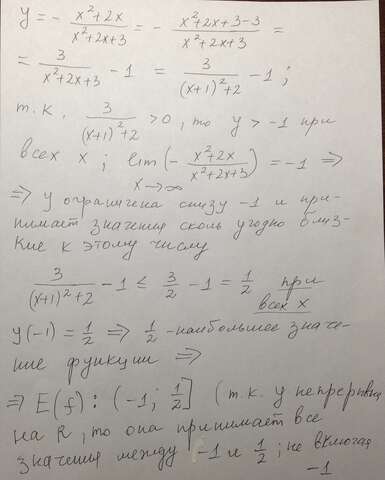 y = - (x²+2x)/(x²+2x+3) = - (x²+2x+3-3)/(x²+2x+3) =
= 3/(x²+2x+3) - 1 = 3/((x+1)²+2) - 1 ;
т.к. 3/((x+1)²+2) > 0, то y > -1 при
всех x ; lim x→∞ (- (x²+2x)/(x²+2x+3)) = -1 ⇒
⇒ y ограничена снизу -1 и при-
нимает значения сколь угодно близ-
кие к этому числу
3/((x+1)²+2) - 1 ≤ 3/2 - 1 = 1/2 при
всех x
y(-1) = 1/2 ⇒ 1/2 - наибольшее значе-
ние функции ⇒
⇒ E(f): (-1; 1/2] (т.к. y непрерывна
на R, то она принимает все
значения между -1 и 1/2; не включая
-1